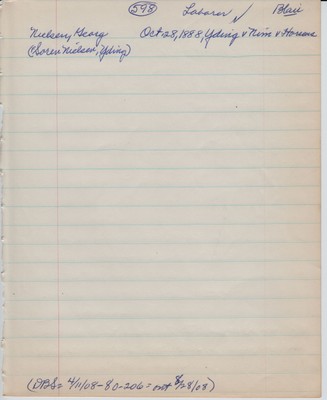 598 Laborer ✓ Blair
Nielsen, Georg Oct 28, 1888, Yding v Nim v Horsens
(Soren Nielsen, Yding)
(DBS = 4/11/08-80-206 = out 8/28/08)